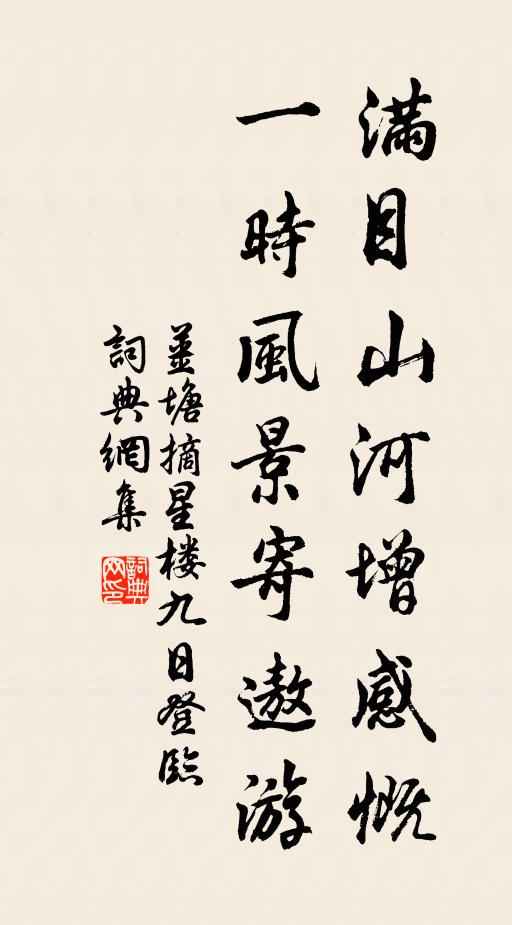 滿目山河增感慨
一時風景寄遨游
薑塘摘星楼九日登臨
詞典網集
詞典网印